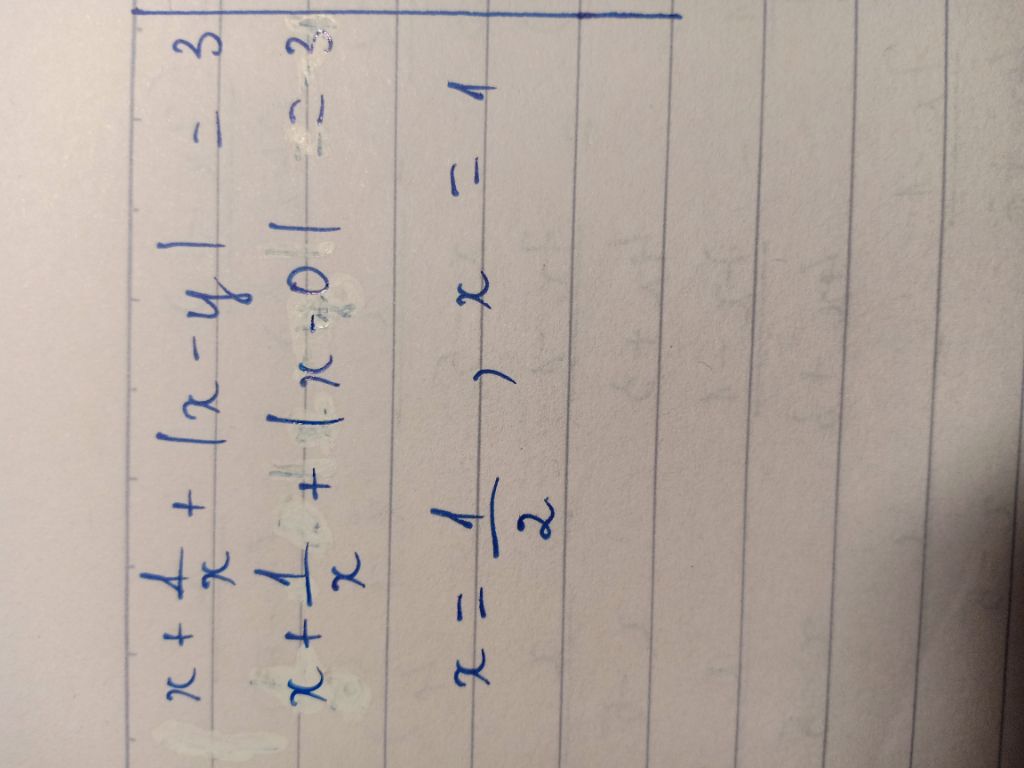 x + 1/x + |x - y| = 3
x + 1/x + |x - 0| = 3
x = 1/2 , x = 1